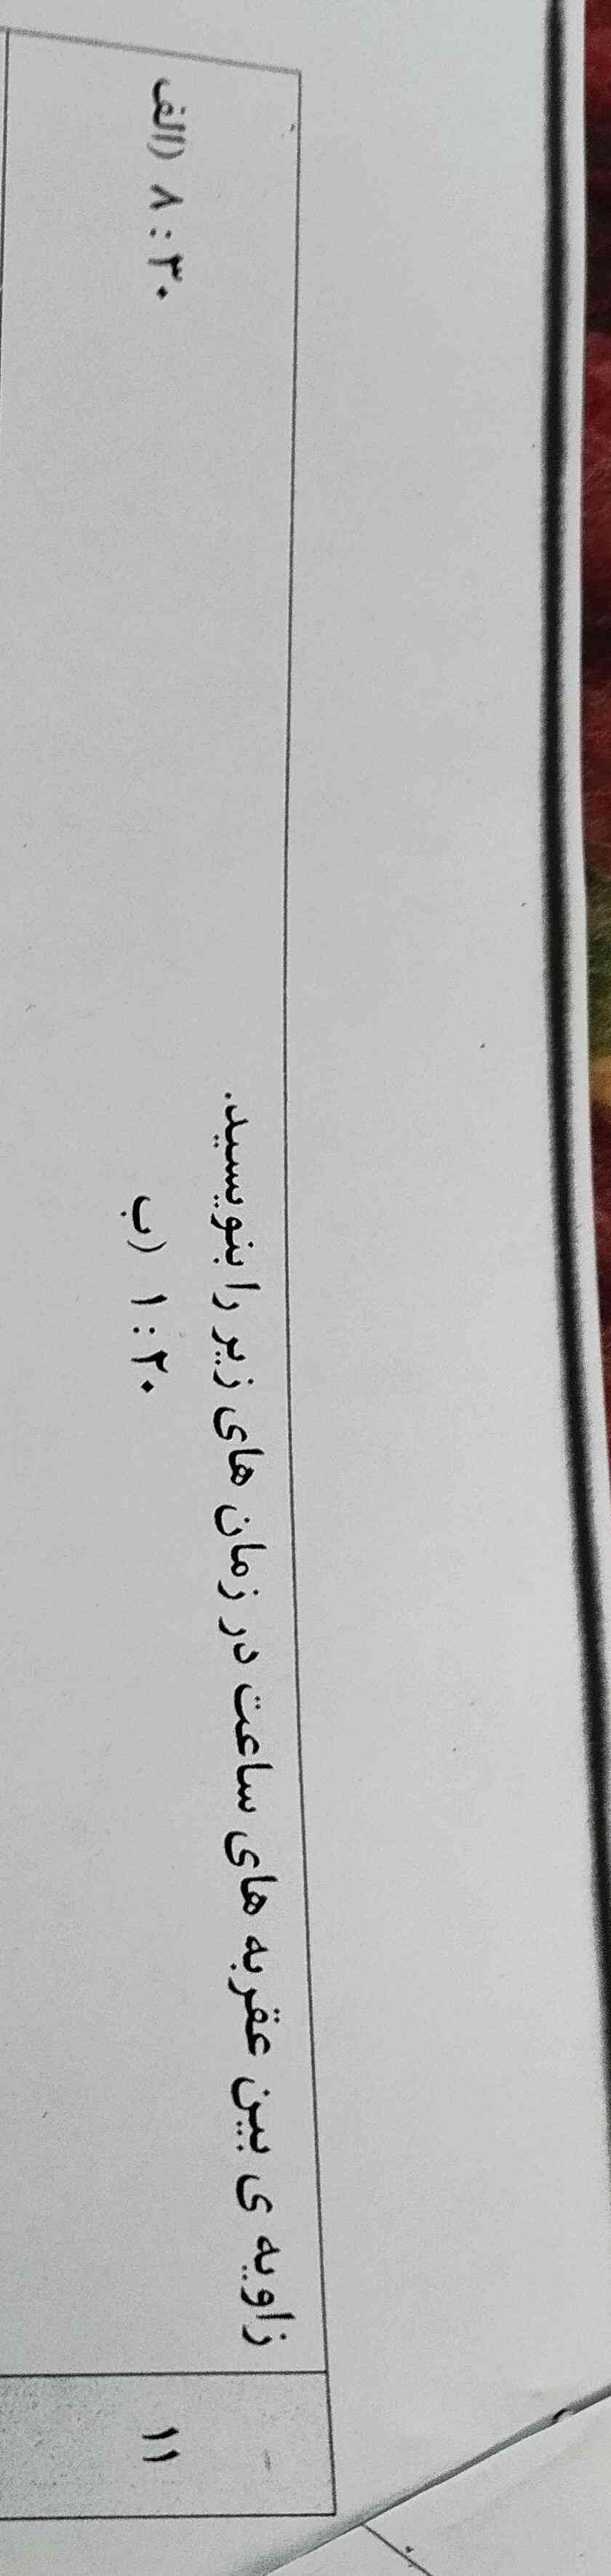 ۱۱
زاویه ی بین عقربه های ساعت در زمان های زیر را بنویسید.
الف) ۸:۳۰
ب) ۱:۲۰